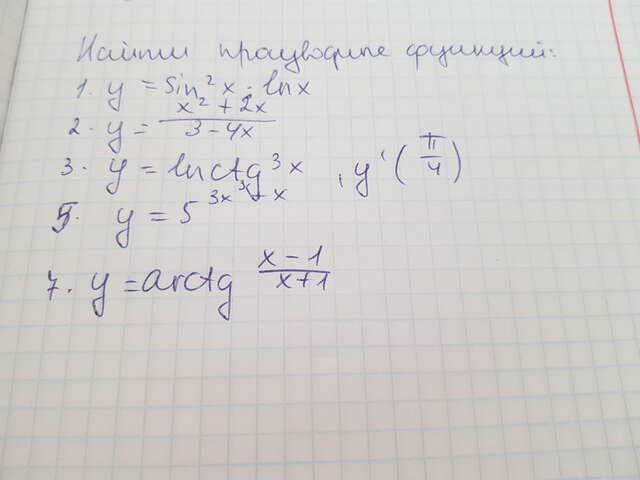 Найти производные функций:
1. y = sin²x · ln x
2. y = (x² + 2x)/(3 - 4x)
3. y = ln ctg³x , y'(π/4)
5. y = 5
7. y = arctg (x - 1)/(x + 1)